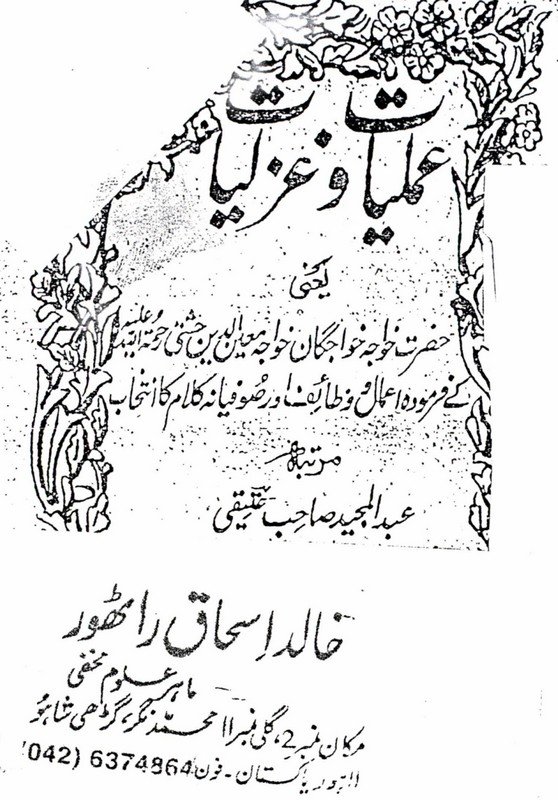 عملیات و غزلیات
یعنی
حضرت خواجہ خواجگان خواجہ معین الدین چشتی رحمۃ اللہ علیہ
کے فرمودہ اعمال و وظائف اور صوفیانہ کلام کا انتخاب
مرتبہ
عبدالمجید صاحب عتیقی
خالد اسحاق راٹھور
ماہر علوم مخفی
مکان نمبر 2، گلی نمبر 11 محمد نگر، گڑھی شاہو
لاہور پاکستان - فون 6374864 (042)